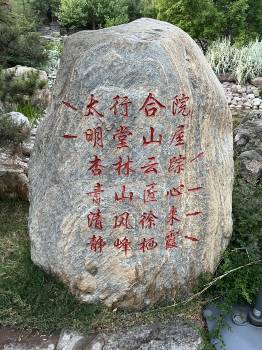 太行合院
明堂山屋
杏林云踪
青山匠心
清风徐来
静峰栖霞